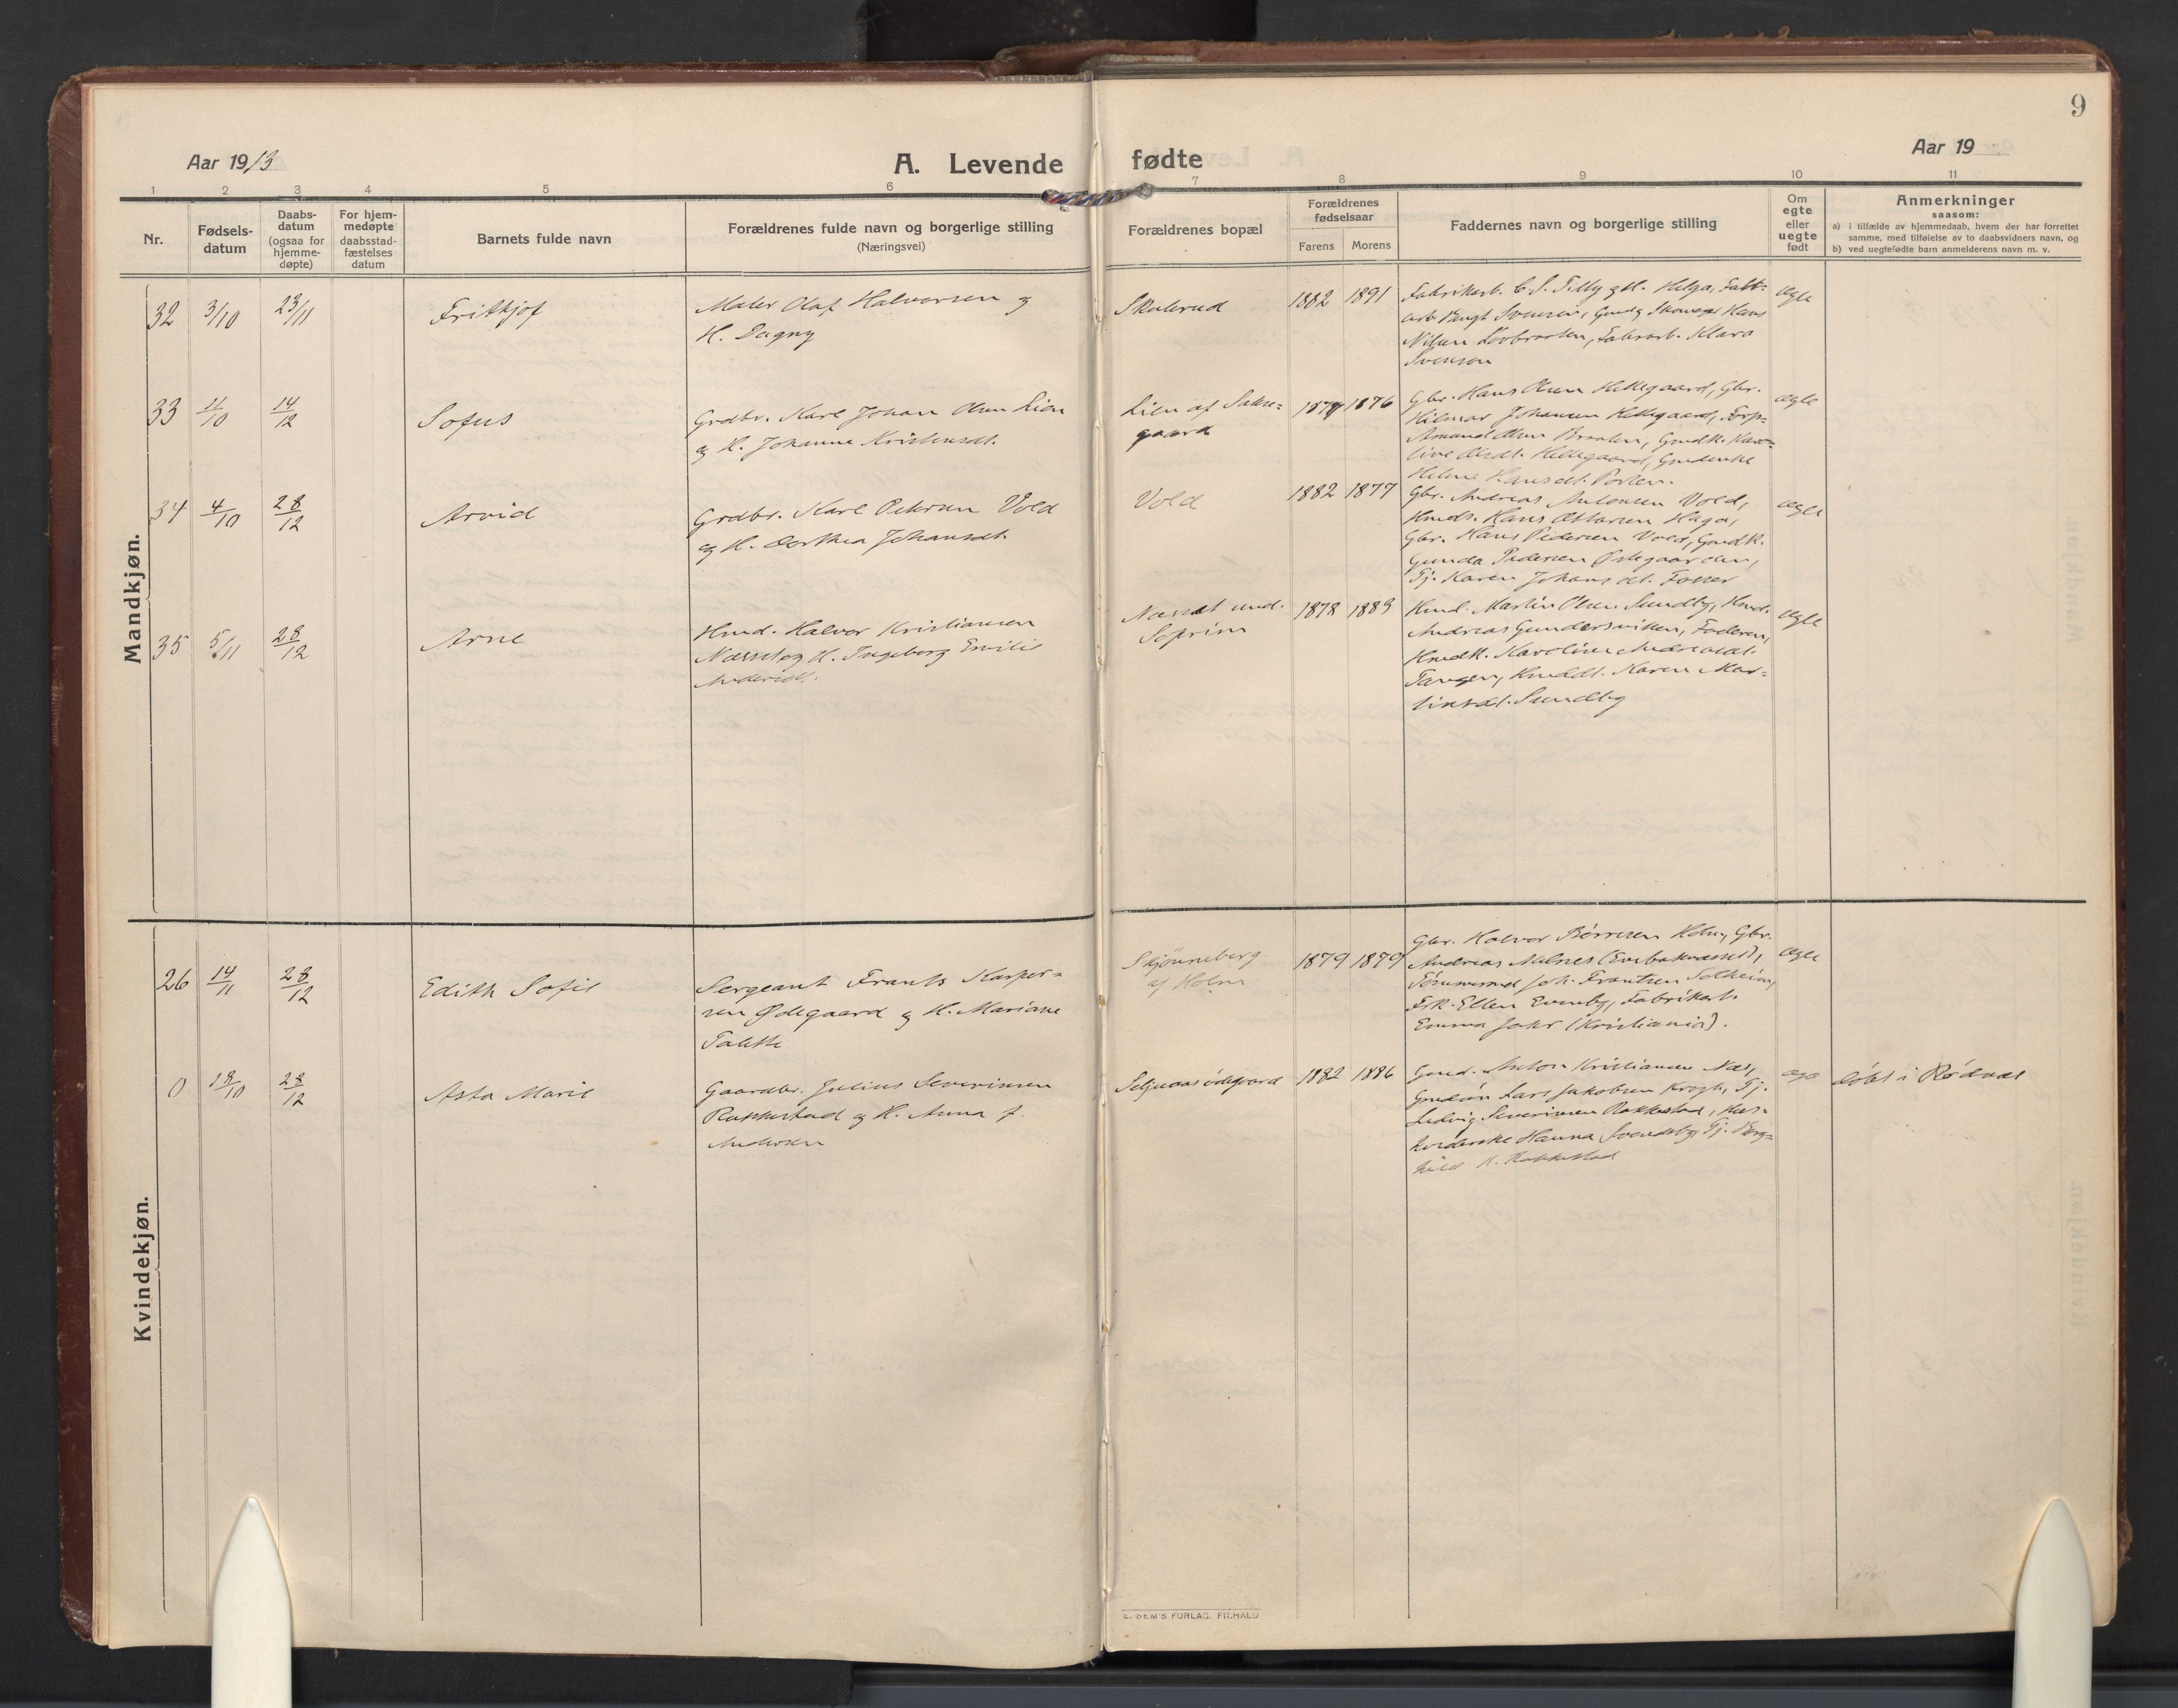 9
Aar 1913
A. Levende fødte
Aar 19
1 2 3 4 5 6 7 8 9 10 11
Nr.
Fødsels-
datum
Daabs-
datum
(ogsaa for
hjemme-
døpte)
For hjem-
medøpte
daabsstad-
fæstelses
datum
Barnets fulde navn
Forældrenes fulde navn og borgerlige stilling
(Næringsvei)
Forældrenes bopæl
Forældrenes
fødselsaar
Farens Morens
Faddernes navn og borgerlige stilling
Om
egte
eller
uegte
født
Anmerkninger
saasom:
a) i tilfælde av hjemmedaab, hvem der har forrettet
samme, med tilføielse av to daabsvidners navn, og
b) ved uegtefødte barn anmelderens navn m. v.
Mandkjøn.
32 3/10 23/11 Frithjof
Maler Olaf Halvorsen og
H. Dagny
Skulerud
1882 1891
Fabrikarb. C. S. Tilly og H. Helga, Fabr=
arb. Bengt Svensen, Hans
Nilsen, Fabrarb. Klara
Svensen
egte
33 11/10 14/12 Sofus
Grdbr. Karl Johan Olsen Lien
og H. Johanne Kristensdt.
Lien af
gaard
1874 1876
Gbr. Hans Olsen Hellegaard, Gbr.
Hilmar Johansen Hellegaard, Forp=
Amund Olsen Braaten, Gmdk. Karo=
line Olsdt. Hellegaard, Gmdenke
Helene Hansdt. Porten.
egte
34 4/10 28/12 Arvid
Grdbr. Karl Petersen Vold
og H. Dorthea Johansdt.
Vold
1882 1877
Gbr. Andreas Antonsen Vold,
Hmds. Hans Ottarsen Haga,
Gbr. Hans Pedersen Vold, Gmdk.
Gunda Pedersen Østegaarden,
Tj. Karen Johansdt. Fosser
egte
35 5/11 28/12 Arne
Hmd. Halvor Kristiansen
Næsset og H. Ingeborg Emilie
Andersdt.
Næsset und.
Soprim
1878 1883
Hmd. Martin Olsen Sundby, Hmd.
Andreas Gundersviken, Faderen,
Hmdk. Karoline Andreasdt.
Tangen, Hmddt. Karen Mar=
tinsdt. Sundby
egte
Kvindekjøn.
26 14/11 28/12 Edith Sofie
Sergeant Frants Kasper=
sen Ødegaard og H. Mariane
Talette
Skjønneberg
af Holm
1879 1879
Gbr. Halvor Børresen Holm, Gbr.
Andreas Melnes,
Tømmermd Joh. Frantzen Solheim,
Frk. Ellen Evenby, Fabrikarb.
Emma Johr (Kristiania).
egte
0 18/10 28/12 Asta Marie
Gaardbr. Julius Severinsen
Rakkestad og H. Anna f.
Andersen
1882 1886
Gmd. Anton Kristiansen Næs,
Gmdsøn Lars Jakobsen Krogh, Tj.
Ludvig Severinsen Rakkestad, Hus=
holderske Hanna Svendsby, Tj. Borg=
hild H. Rakkestad
døbt i Rødenes
E. SEM'S FORLAG. FR.HALD